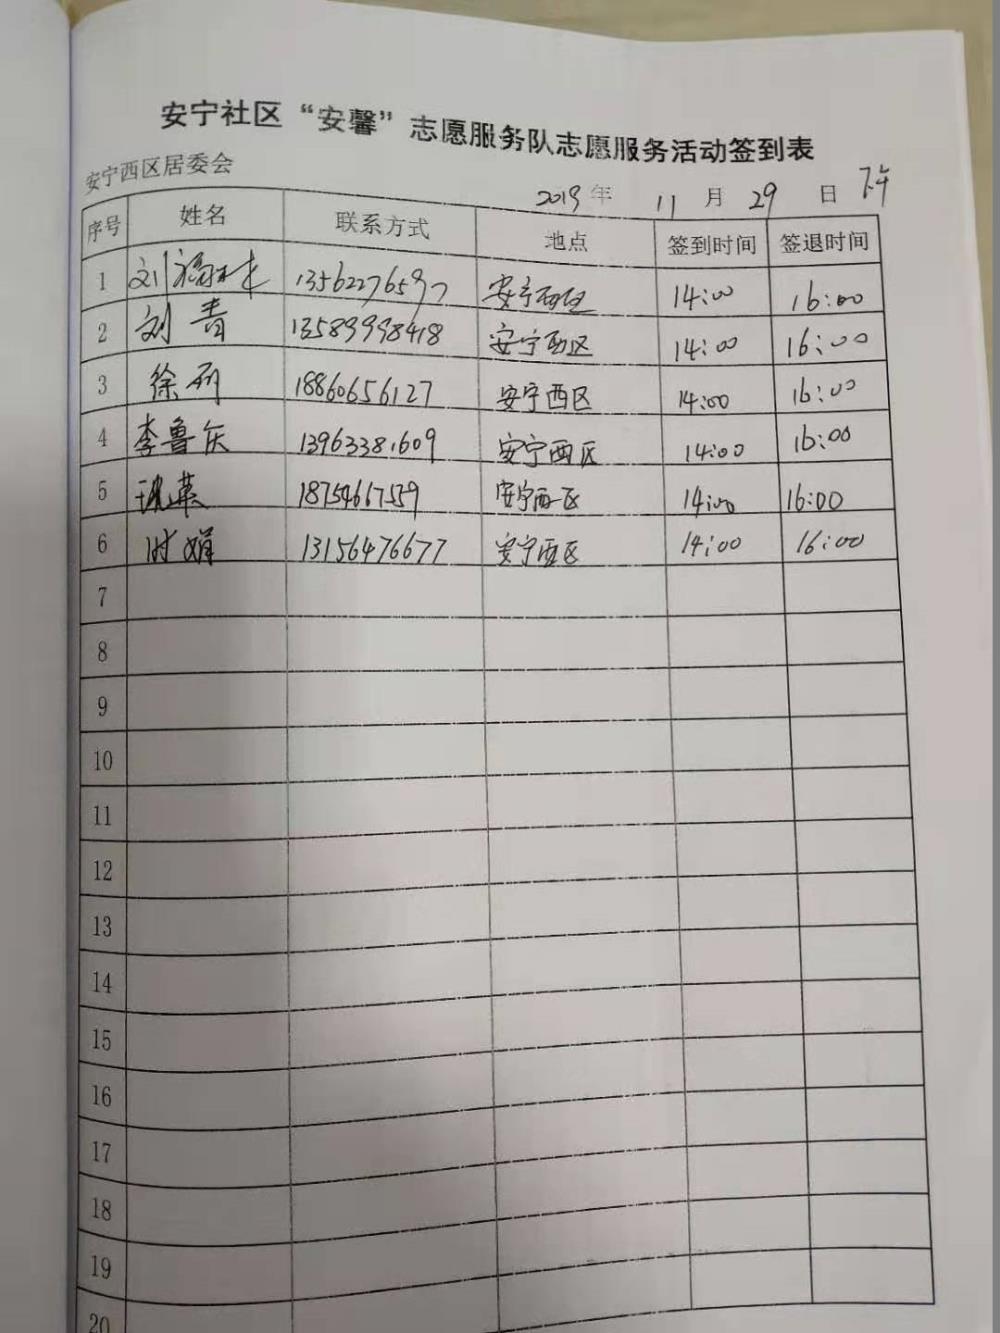 安宁社区“安馨”志愿服务队志愿服务活动签到表
安宁西区居委会
2019年 11 月 29 日 下午
序号 姓名 联系方式 地点 签到时间 签退时间
1 刘福林 13562276597 安宁西区 14:00 16:00
2 刘青 13589998418 安宁西区 14:00 16:00
3 徐 18860656127 安宁西区 14:00 16:00
4 李鲁庆 13963381609 安宁西区 14:00 16:00
5 18754667559 安宁西区 14:00 16:00
6 时娟 13156476677 安宁西区 14:00 16:00
7
8
9
10
11
12
13
14
15
16
17
18
19
20